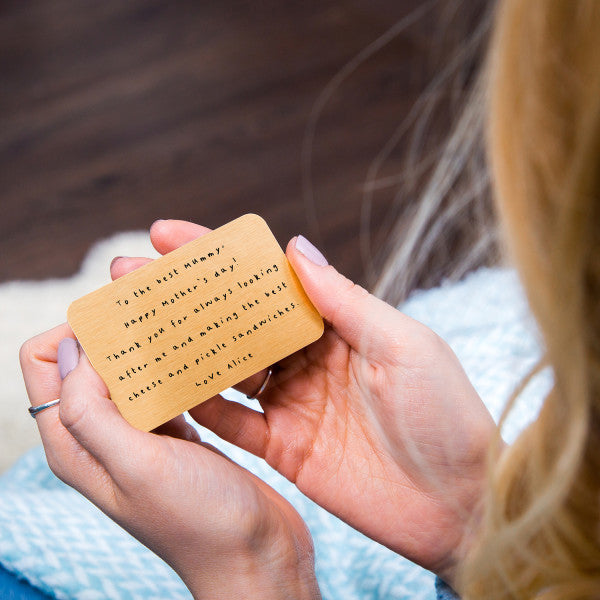 To the best Mummy,
Happy Mother's day!
Thank you for always looking
after me and making the best
cheese and pickle sandwiches.
Love Alice